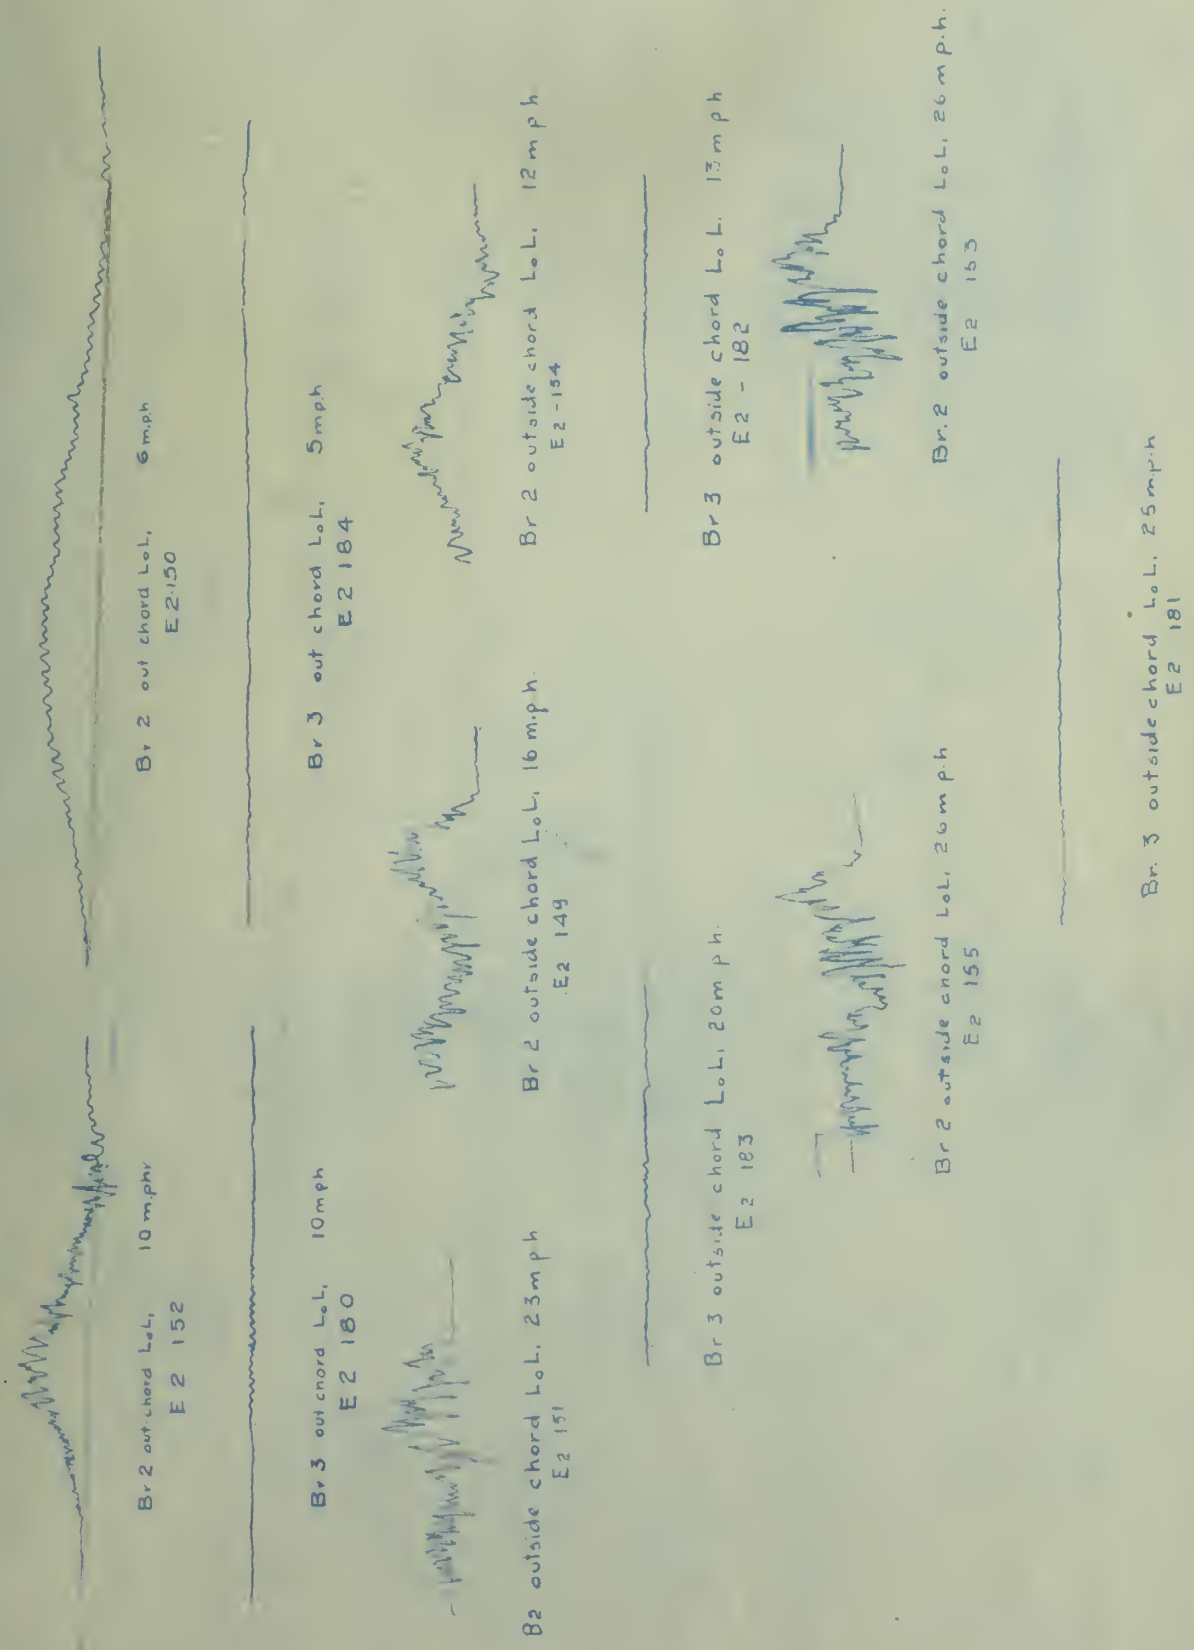 Br 2 out chord LoL, 10 m.phr
E 2 152
Br 2 out chord LoL, 6 m.p.h
E 2·150
Br 3 out chord LoL, 10 mph
E 2 180
Br 3 out chord LoL, 5 m.p.h
E 2 184
B2 outside chord LoL, 23 mph
E2 151
Br 2 outside chord LoL, 16 m.p.h.
E2 149
Br 2 outside chord LoL, 12 mph
E2-154
Br 3 outside chord LoL, 20 m p h.
E2 183
Br 3 outside chord LoL, 13 m p h
E2 - 182
Br 2 outside chord LoL, 26 m p.h
E2 155
Br. 2 outside chord LoL, 26 m p.h.
E2 153
Br. 3 outside chord LoL, 25 m.p.h
E2 181